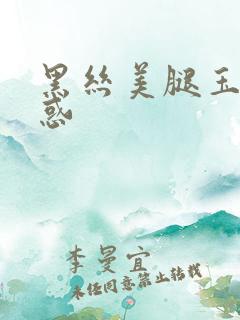 黑丝美腿玉
惑
李曼宜
未经同意禁止转载